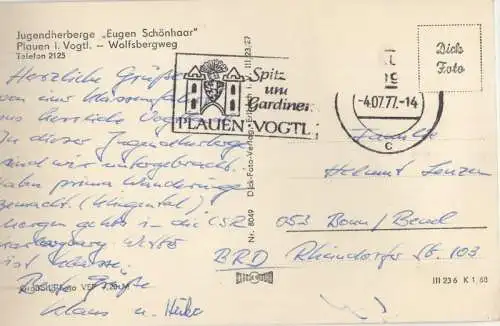 Jugendherberge „Eugen Schönhaar"
Plauen i. Vogtl. — Wolfsbergweg
Telefon 2125
Herzliche Grüße
von einer Klassenfahrt
aus herzliche
In dieser Jugendherberge
sind wir untergebracht.
haben prima Wanderung
gemacht. (Klingental)
morgen gehts in die ČSR
ist klasse.
Beste Grüße
Klaus u. Heiko
VEB
III 23 27
Dick-Foto-Verlag, Erlbach i. V.
Nr. 8049
Spitzen
und
Gardinen
PLAUEN · VOGTL
-4.07.77.-14
c
Dick
Foto
Familie
Helmut Lenzen
053 Bonn/Beuel
BRD Rheindorfer Str. 103
III 23 6 K 1/68